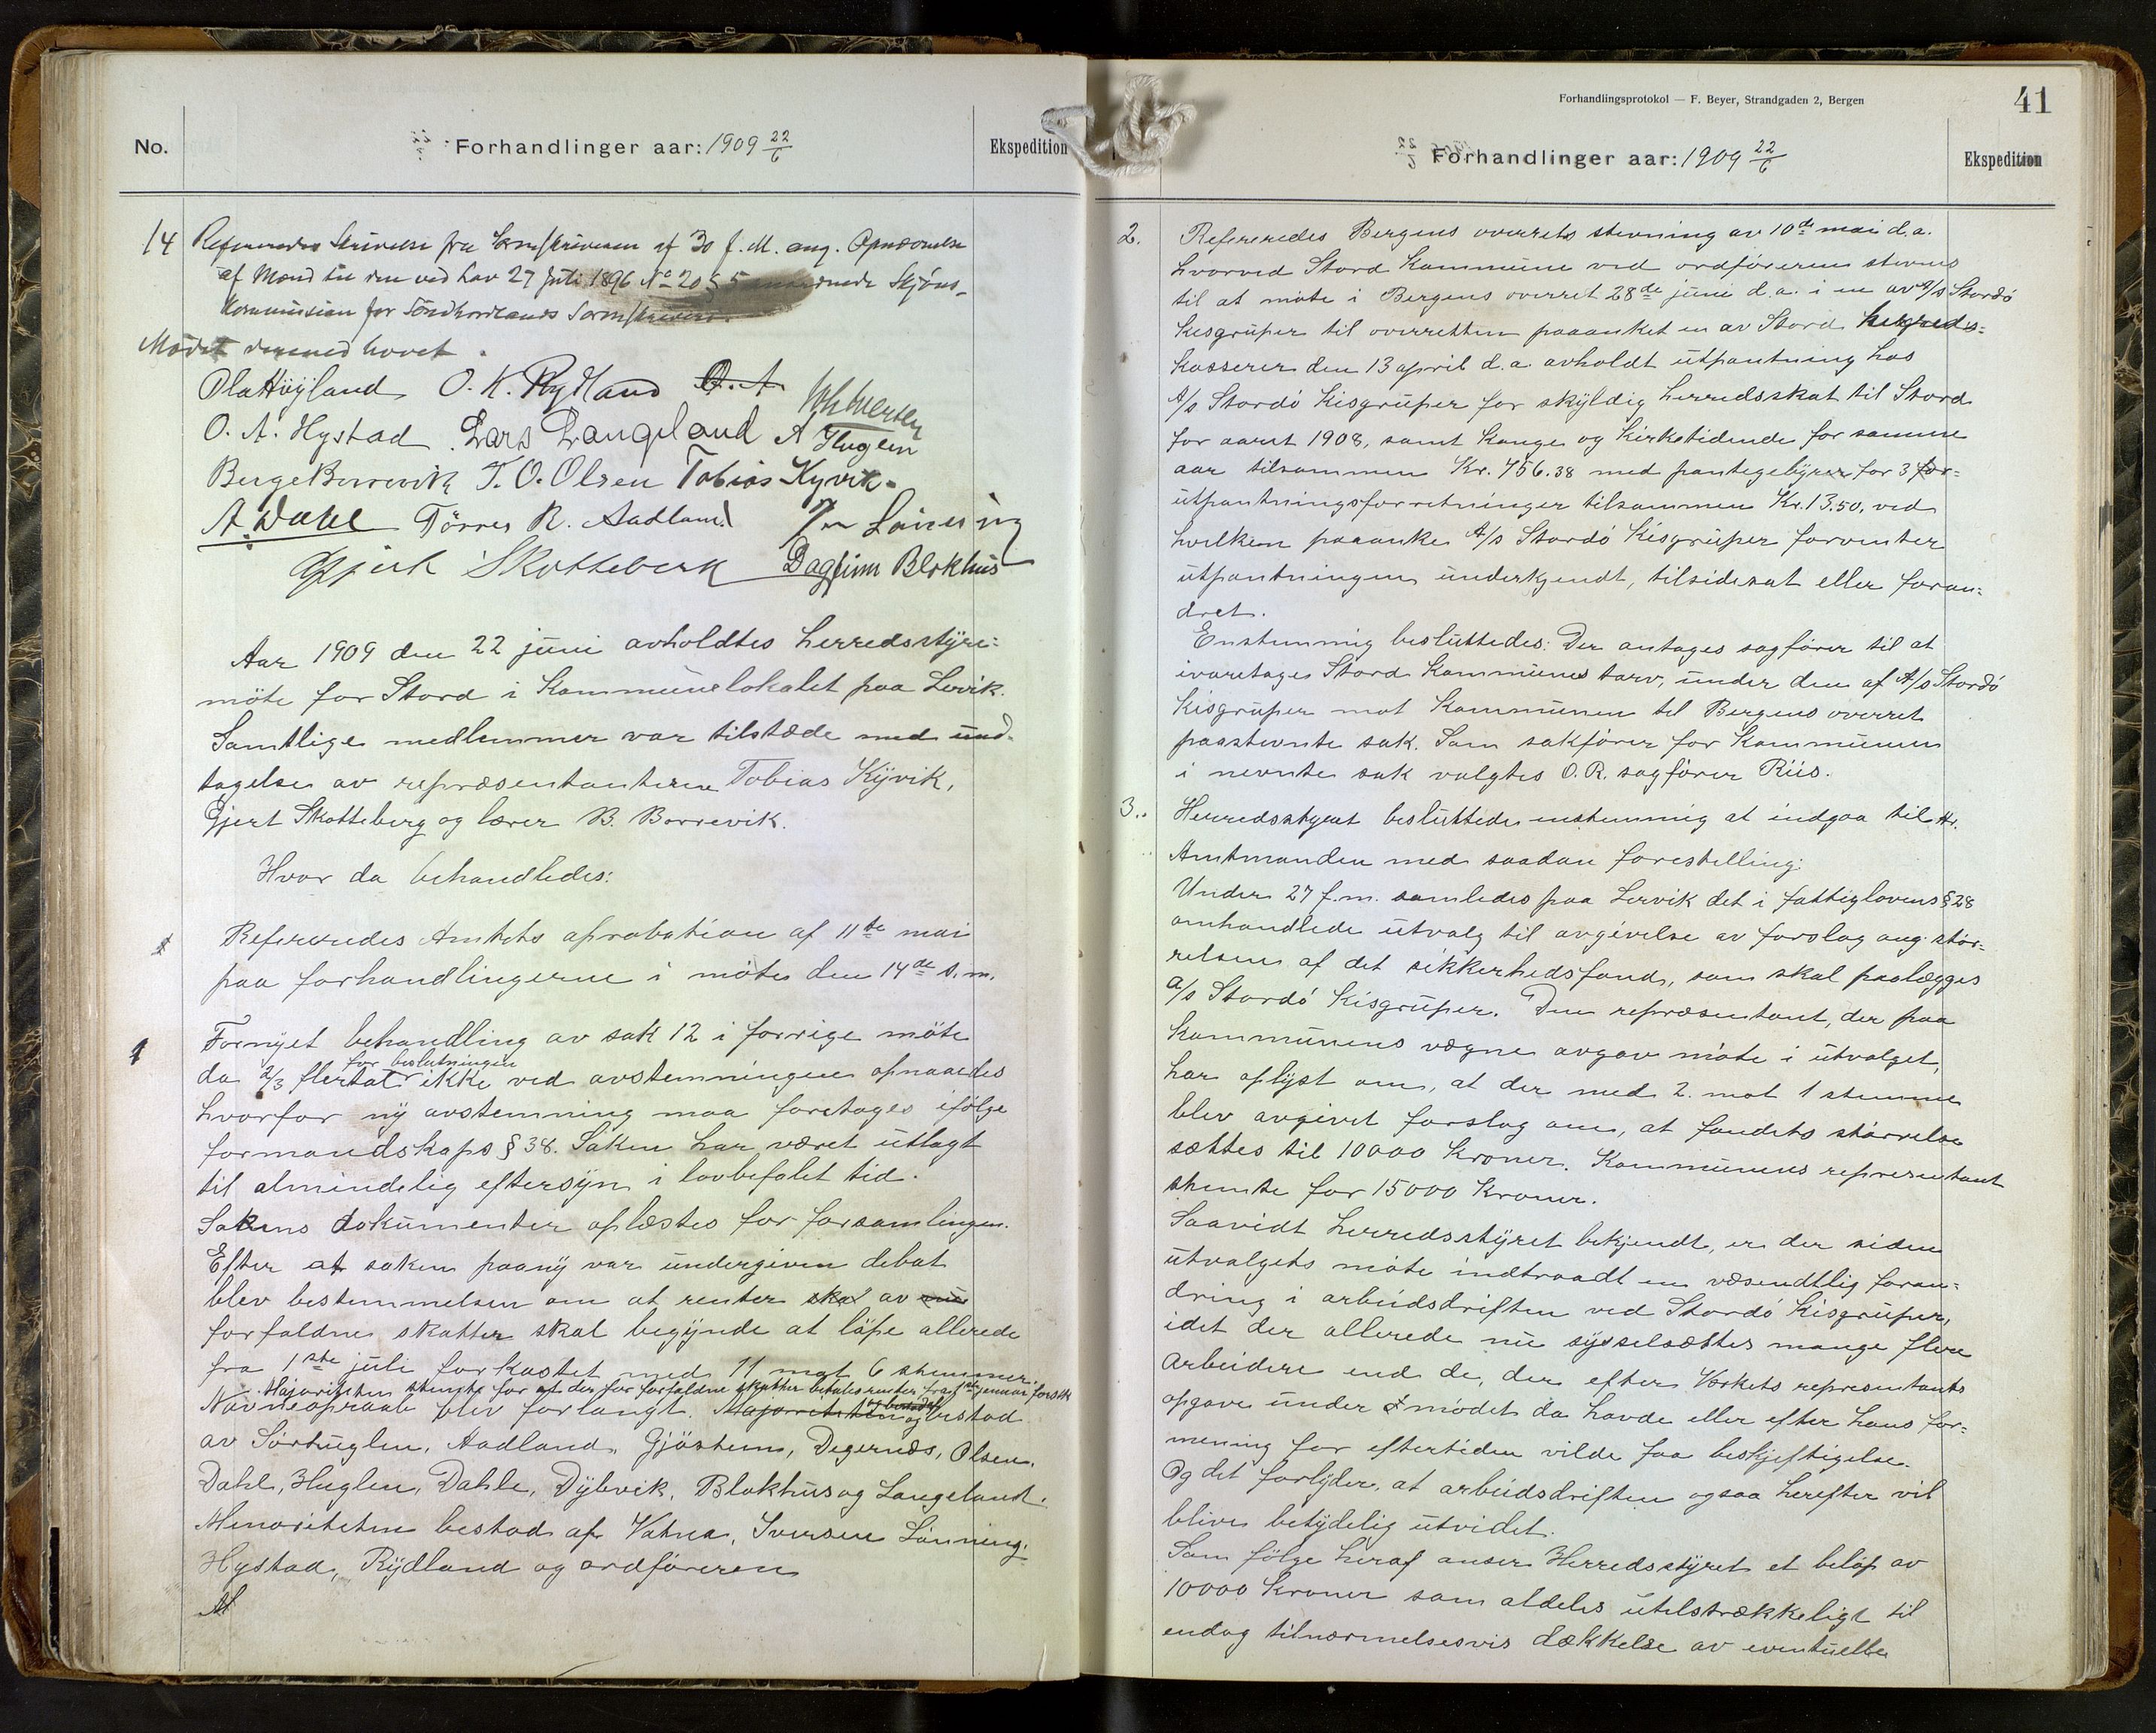 No.
Forhandlinger aar: 1909 22/6
Ekspedition
14 Refereredes Skrivelse fra Sorenskriveren af 30 f. M. ang. Opnævnelse
af Mænd til den ved Lov 27 Juli 1896 No 20 § 5 anordnede Skjøns-
kommission for Söndhordlands Sorenskriveri.
Mødet dermed hævet.
Ola Høyland O. K. Rydland O. A.
O. A. Hystad Lars Langeland A Huglen
Berge Borrevik T. O. Olsen Tobias Kyvik.
A. Dahl Törres R. Aadland
Gjert Skotteberg Dagfinn Blokhus
Aar 1909 den 22 juni avholdtes herredsstyre=
möte for Stord i Kommunelokalet paa Lervik.
Samtlige medlemmer var tilstæde med und-
tagelse av repræsentanterne Tobias Kyvik,
Gjert Skotteberg og lærer B. Borrevik.
Hvor da behandledes:
Refereredes Amtets aprobation af 11te mai
paa forhandlingerne i möte den 14de s.m.
1 Fornyet behandling av sak 12 i forrige möte
da 2/3 flertal for beslutningen ikke ved avstemningen opnaaedes
hvorfor ny avstemning maa foretages ifölge
formandskaps § 38. Saken har været utlagt
til almindelig eftersyn i lovbefalet tid.
Sakens dokumenter oplæstes for forsamlingen.
Efter at saken paany var undergiven debat
blev bestemmelsen om at renter skal av
forfaldne skatter skal begynde at löpe allerede
fra 1ste juli forkastet med 11 mot 6 stemmer.
Majoriteten stemte for at der for forfaldne skatter betales renter fra 1ste januar
Navneopraab blev forlangt. Majoriteten og bestod
av Sörhuglen, Aadland, Gjöstein, Degernæs, Olsen.
Dahl, Huglen, Dahle, Dybvik, Blokhus og Langeland.
Menoriteten bestod af Vatna, Iversen Lönning.
Hystad, Rydland og ordföreren
Forhandlingsprotokol — F. Beyer, Strandgaden 2, Bergen
41
Forhandlinger aar: 1909 22/6
Ekspedition
2. Refereredes Bergens overrets stevning av 10de mai d.a.
hvorved Stord Kommune ved ordföreren stevnes
til at möte i Bergens overret 28de juni d.a. i en av A/s Stordö
Kisgruper til overretten paaanket en av Stord herreds=
kasserer den 13 april d.a. avholdt utpantning hos
A/s Stordö Kisgruper for skyldig herredsskat til Stord
for aaret 1908, samt Konge og Kirketidende for samme
aar tilsammen Kr. 756.38 med pantegebyrer for 3 for=
utpantningsforretninger tilsammen Kr. 13.50, ved
hvilken paaanke A/s Stordö Kisgruper forventer
utpantningen underkjendt, tilsidesat eller foran=
dret.
Enstemmig besluttedes: Der antages sagförer til at
ivaretage Stord Kommunes tarv, under den af A/s Stordö
Kisgruper mot Kommunen til Bergens overret
paastevnte sak. Som sakförer for Kommunen
i nevnte sak valgtes O.R. sagförer Riis.
3. Herredsstyret besluttede enstemmig at indgaa til Hr.
Amtmanden med saadan forestilling:
Under 27 f.m. samledes paa Lervik det i fattiglovens § 28
omhandlede utvalg til avgivelse av forslag ang. stör=
relsen af det sikkerhedsfond, som skal paalægges
A/s Stordö Kisgruper. Den repræsentant, der paa
Kommunens vegne avgav möte i utvalget,
har oplyst om, at der med 2 mot 1 stemme
blev avgivet forslag om, at fondets störrelse
sættes til 10000 kroner. Kommunens representant
stemte for 15000 Kroner.
Saavidt herredsstyret bekjendt, er der siden
utvalgets möte indtraadt en væsendtlig foran=
dring i arbeidsdriften ved Stordö Kisgruper,
idet der allerede nu sysselsættes mange flere
arbeidere end de, der efter Værkets representants
opgave under mödet da havde eller efter hans for=
mening for eftertiden vilde faa beskjeftigelse.
Og det forlyder, at arbeidsdriften ogsaa herefter vil
blive betydelig utvidet.
Som fölge heraf anser Herredsstyret et belöp av
10000 kroner som aldeles utilstrækkeligt til
endog tilnærmelsesvis dækkelse av eventuelle